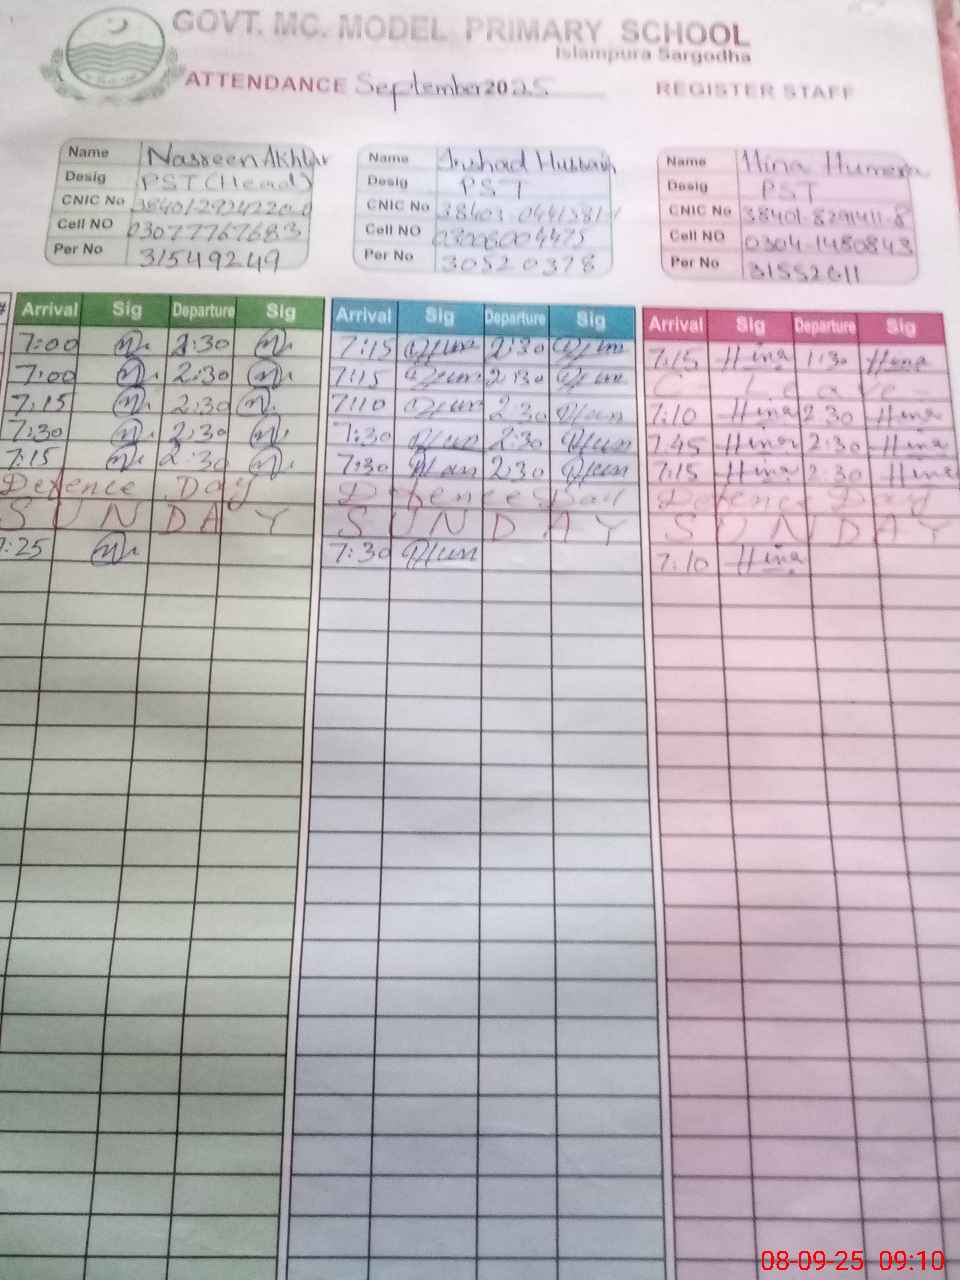 GOVT. MC. MODEL PRIMARY SCHOOL
Islampura Sargodha
ATTENDANCE September 2025 REGISTER STAFF
Name Nasreen Akhtar
Desig PST (Head)
CNIC No
Cell NO 03077767683
Per No 31549249
Name Arshad Hussain
Desig PST
CNIC No
Cell NO 03006004475
Per No 30520378
Name Hina Humera
Desig PST
CNIC No 38401-8291411-8
Cell NO 0304-1480843
Per No 31552611
# Arrival Sig Departure Sig Arrival Sig Departure Sig Arrival Sig Departure Sig
7:00 2:30 7:15 2:30 7:15 Hina 1:30 Hina
7:00 2:30 7:15 2:30 C Leave
7:15 2:30 7:10 2:30 7:10 Hina 2:30 Hina
7:30 2:30 7:30 2:30 7:45 Hina 2:30 Hina
7:15 2:30 7:30 2:30 7:15 Hina 2:30 Hina
Defence Day Defence Day Defence Day
SUNDAY SUNDAY SUNDAY
7:25 7:30 7:10 Hina
08-09-25 09:10